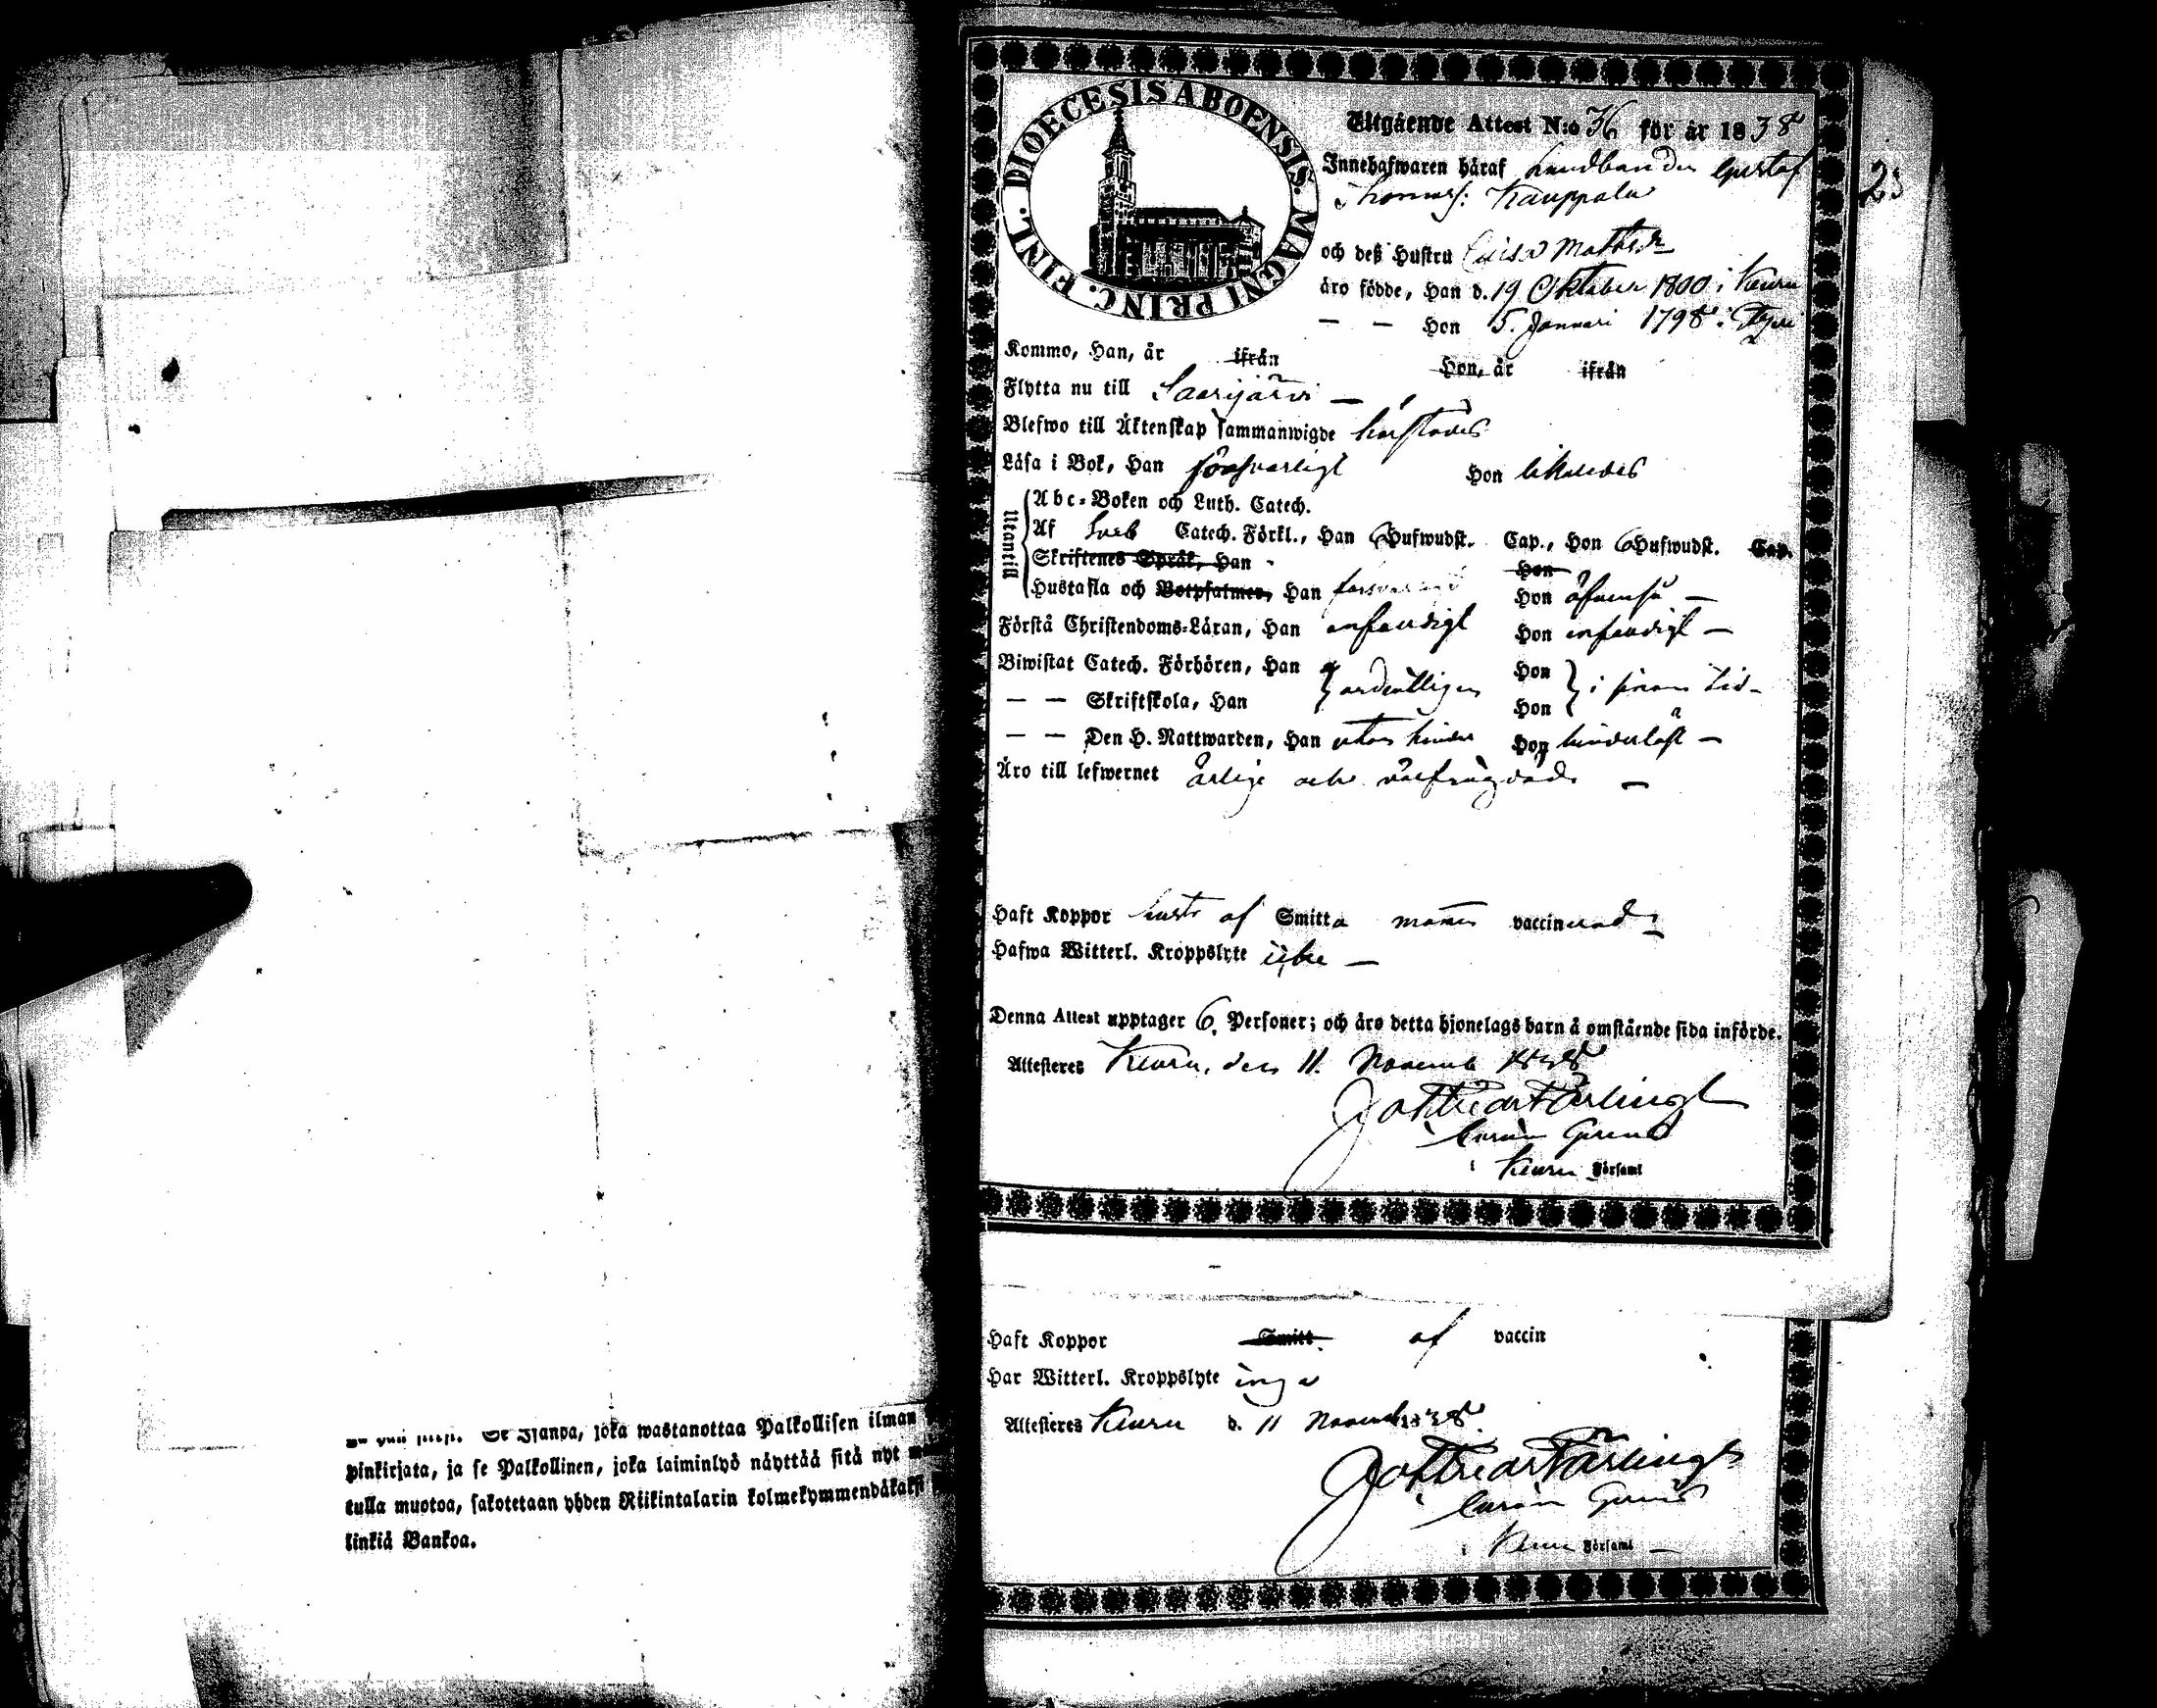 pinkirjata, ja se Palkollinen, joka laiminlyö näyttää sitä nyt
tulla muotoa, sakotetaan yhden Riikintalarin kolmekymmendäkaksi
linkiä Bankoa.
Isanda, joka wastanottaa Palkollisen ilman
DIOECESIS ABOENSIS. MAGNI PRINC. FINL.
Utgående Attest N:o 36 för år 1838
Innehafwaren häraf Landbonden Gustaf
Thomass: Kauppala
23
och deß Hustru Caisa Mattsdr
äro födde, Han d. 19 Oktober 1800 i Keuru
— — Hon 5. Januari 1798 i
Kommo, Han, år ifrån Hon, år ifrån
Flytta nu till Saarijärvi —
Blefwo till Äktenskap sammanwigde härstädes
Läsa i Bok, Han försvarligt Hon likaledes
Utantill
Abc-Boken och Luth. Catech.
Af Sveb Catech. Förkl., Han 6 Hufwudst. Cap., Hon 6 Hufwudst. Cap.
Skriftenes Språk, Han Hon
Hustafla och Botpsalmer, Han försvarligt Hon äfvenså —
Förstå Christendoms-Läran, Han enfaldigt Hon enfaldigt —
Biwistat Catech. Förhören, Han Hon
ordentligen i sinom tid —
— — Skriftskola, Han Hon
— — Den H. Nattwarden, Han utan hinder Hon hinderlöst —
Äro till lefwernet ärlige och välfrägdade —
Haft Koppor hustr af Smitta mannen vaccinerad —
Hafwa Witterl. Kroppslyte icke —
Denna Attest upptager 6. Personer; och äro detta hjonelags barn å omstående sida införde.
Attesteres Keuru, den 11. Novemb 1838
Gottfried Färling
Curam Gerens
i Keuru Församl
Haft Koppor Smitt af vaccin
Har Witterl. Kroppslyte inga
Attesteres Keuru d. 11 Novemb 1838
Gottfried Färling
Curam Gerens
i Keuru Församl —